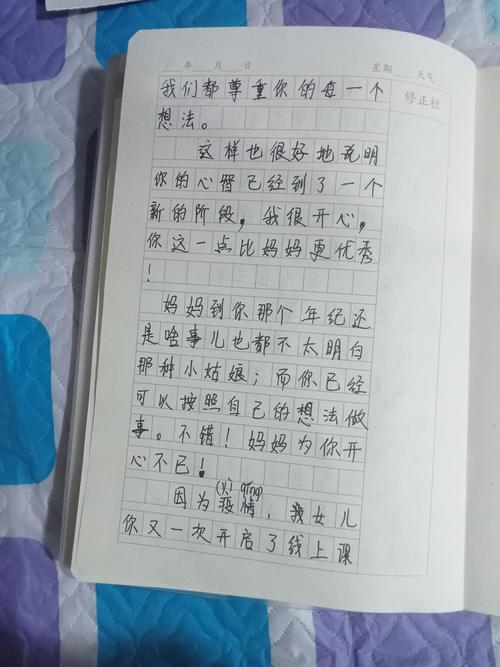 年 月 日 星期 天气
修正栏
我们都尊重你的每一个
想法。
这样也很好地说明
你的心智已经到了一个
新的阶段，我很开心，
你这一点比妈妈更优秀
！
妈妈到你那个年纪还
是啥事儿也都不太明白
那种小姑娘；而你已经
可以按照自己的想法做
事。不错！妈妈为你开
心不已！
(yì qíng)
因为疫情，我女儿
你又一次开启了线上课